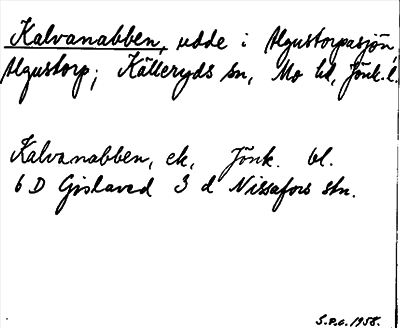 Kalvanabben, udde i Algustorpasjön,
Algustorp; Källeryds sn, Mo hd, Jönk. l.
Kalvanabben, ek, Jönk. bl.
6 D Gislaved 3 d Nissafors stn.
S.P.G. 1958.